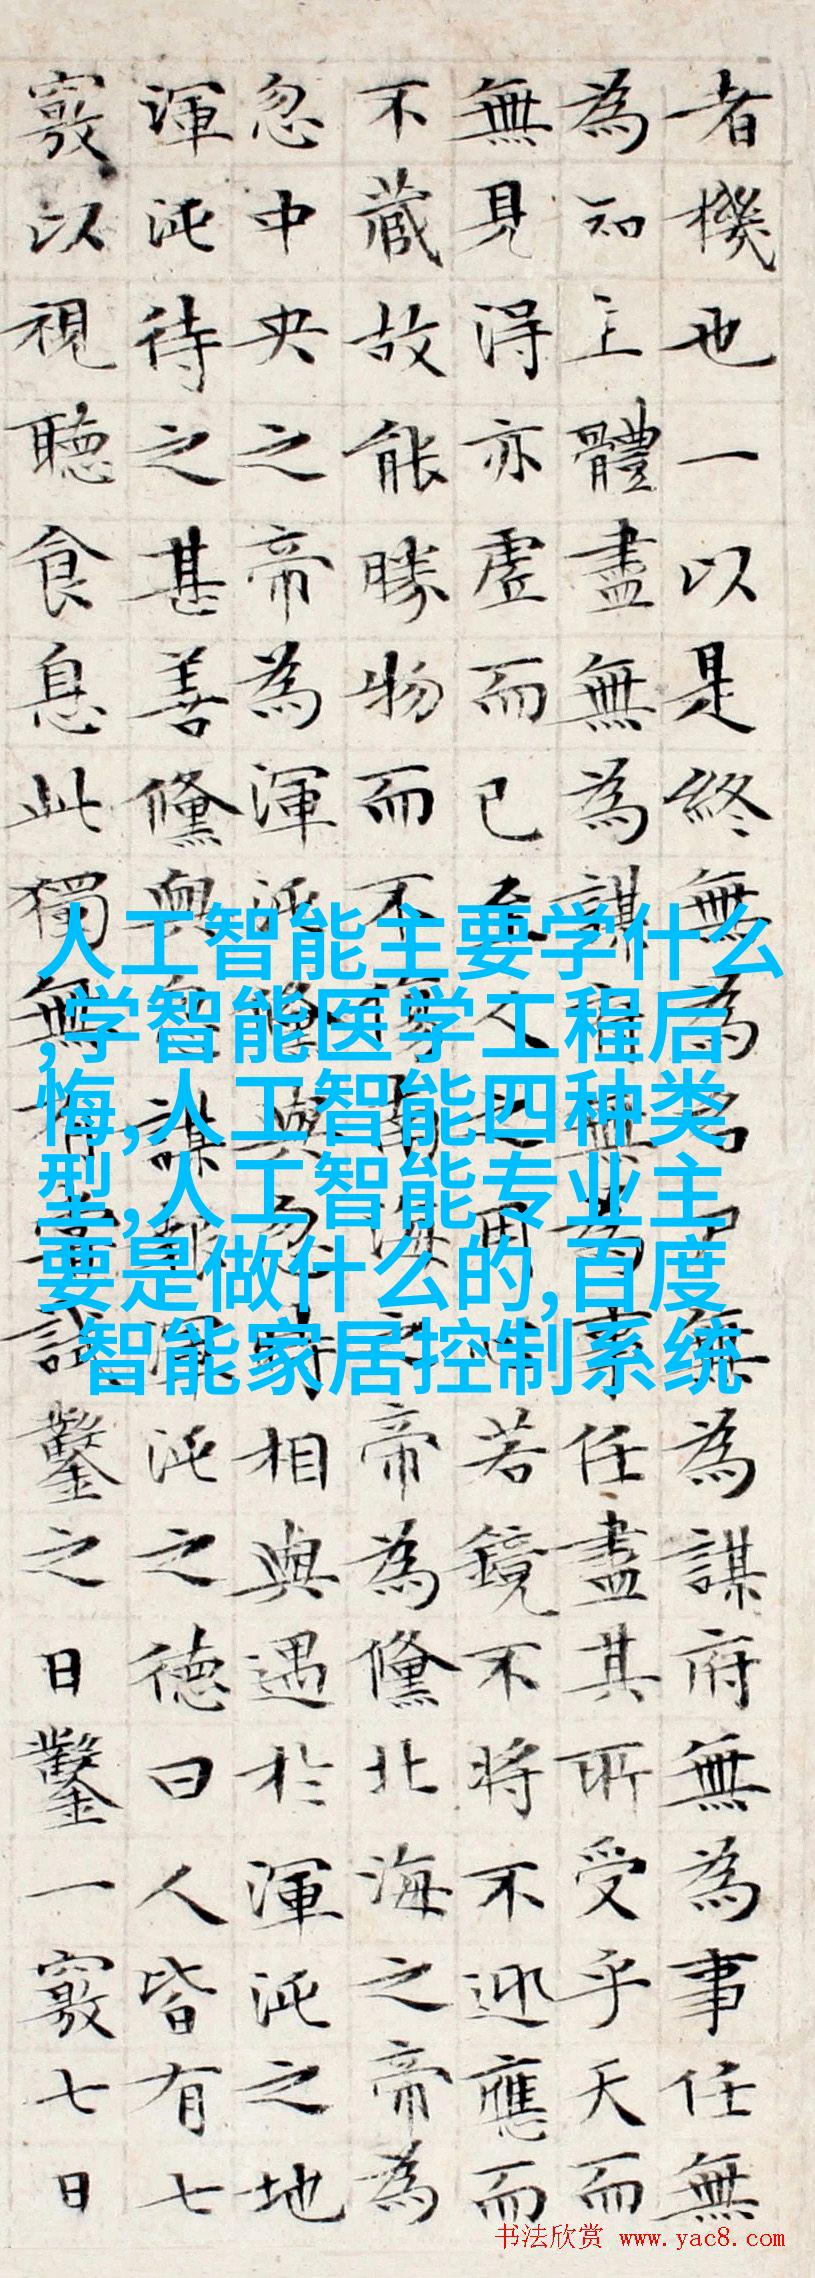 者機也一以是終無為名尸無為謀府無為事任無
為知主體盡無為謀府無為事任盡其所受乎天而
無見得亦虛而已至人之用心若鏡不將不迎應而
不藏故能勝物而不傷南海之帝為儵北海之帝為
忽中央之帝為渾沌儵與忽時相與遇於渾沌之地
渾沌待之甚善儵與忽謀報渾沌之德曰人皆有七
竅以視聽食息此獨無有嘗試鑿之日鑿一竅七日
人工智能主要学什么
,学智能医学工程后
悔,人工智能四种类
型,人工智能专业主
要是做什么的,百度
智能家居控制系统
书法欣赏 www.yac8.com